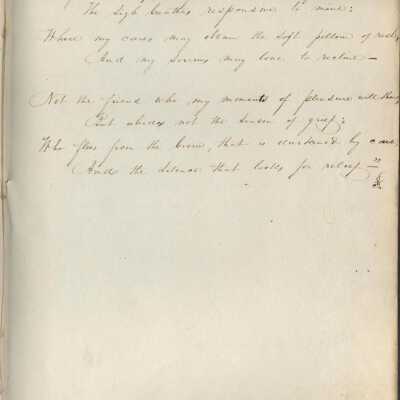 The sigh breathes responsive to mine;
Where my cares may obtain the soft pillow of rest,
And my sorrows may love to recline —
Not the friend who my moments of pleasure will share
But abides not the season of grief;
Who flies from the brow, that is by care,
And the that looks for relief — "